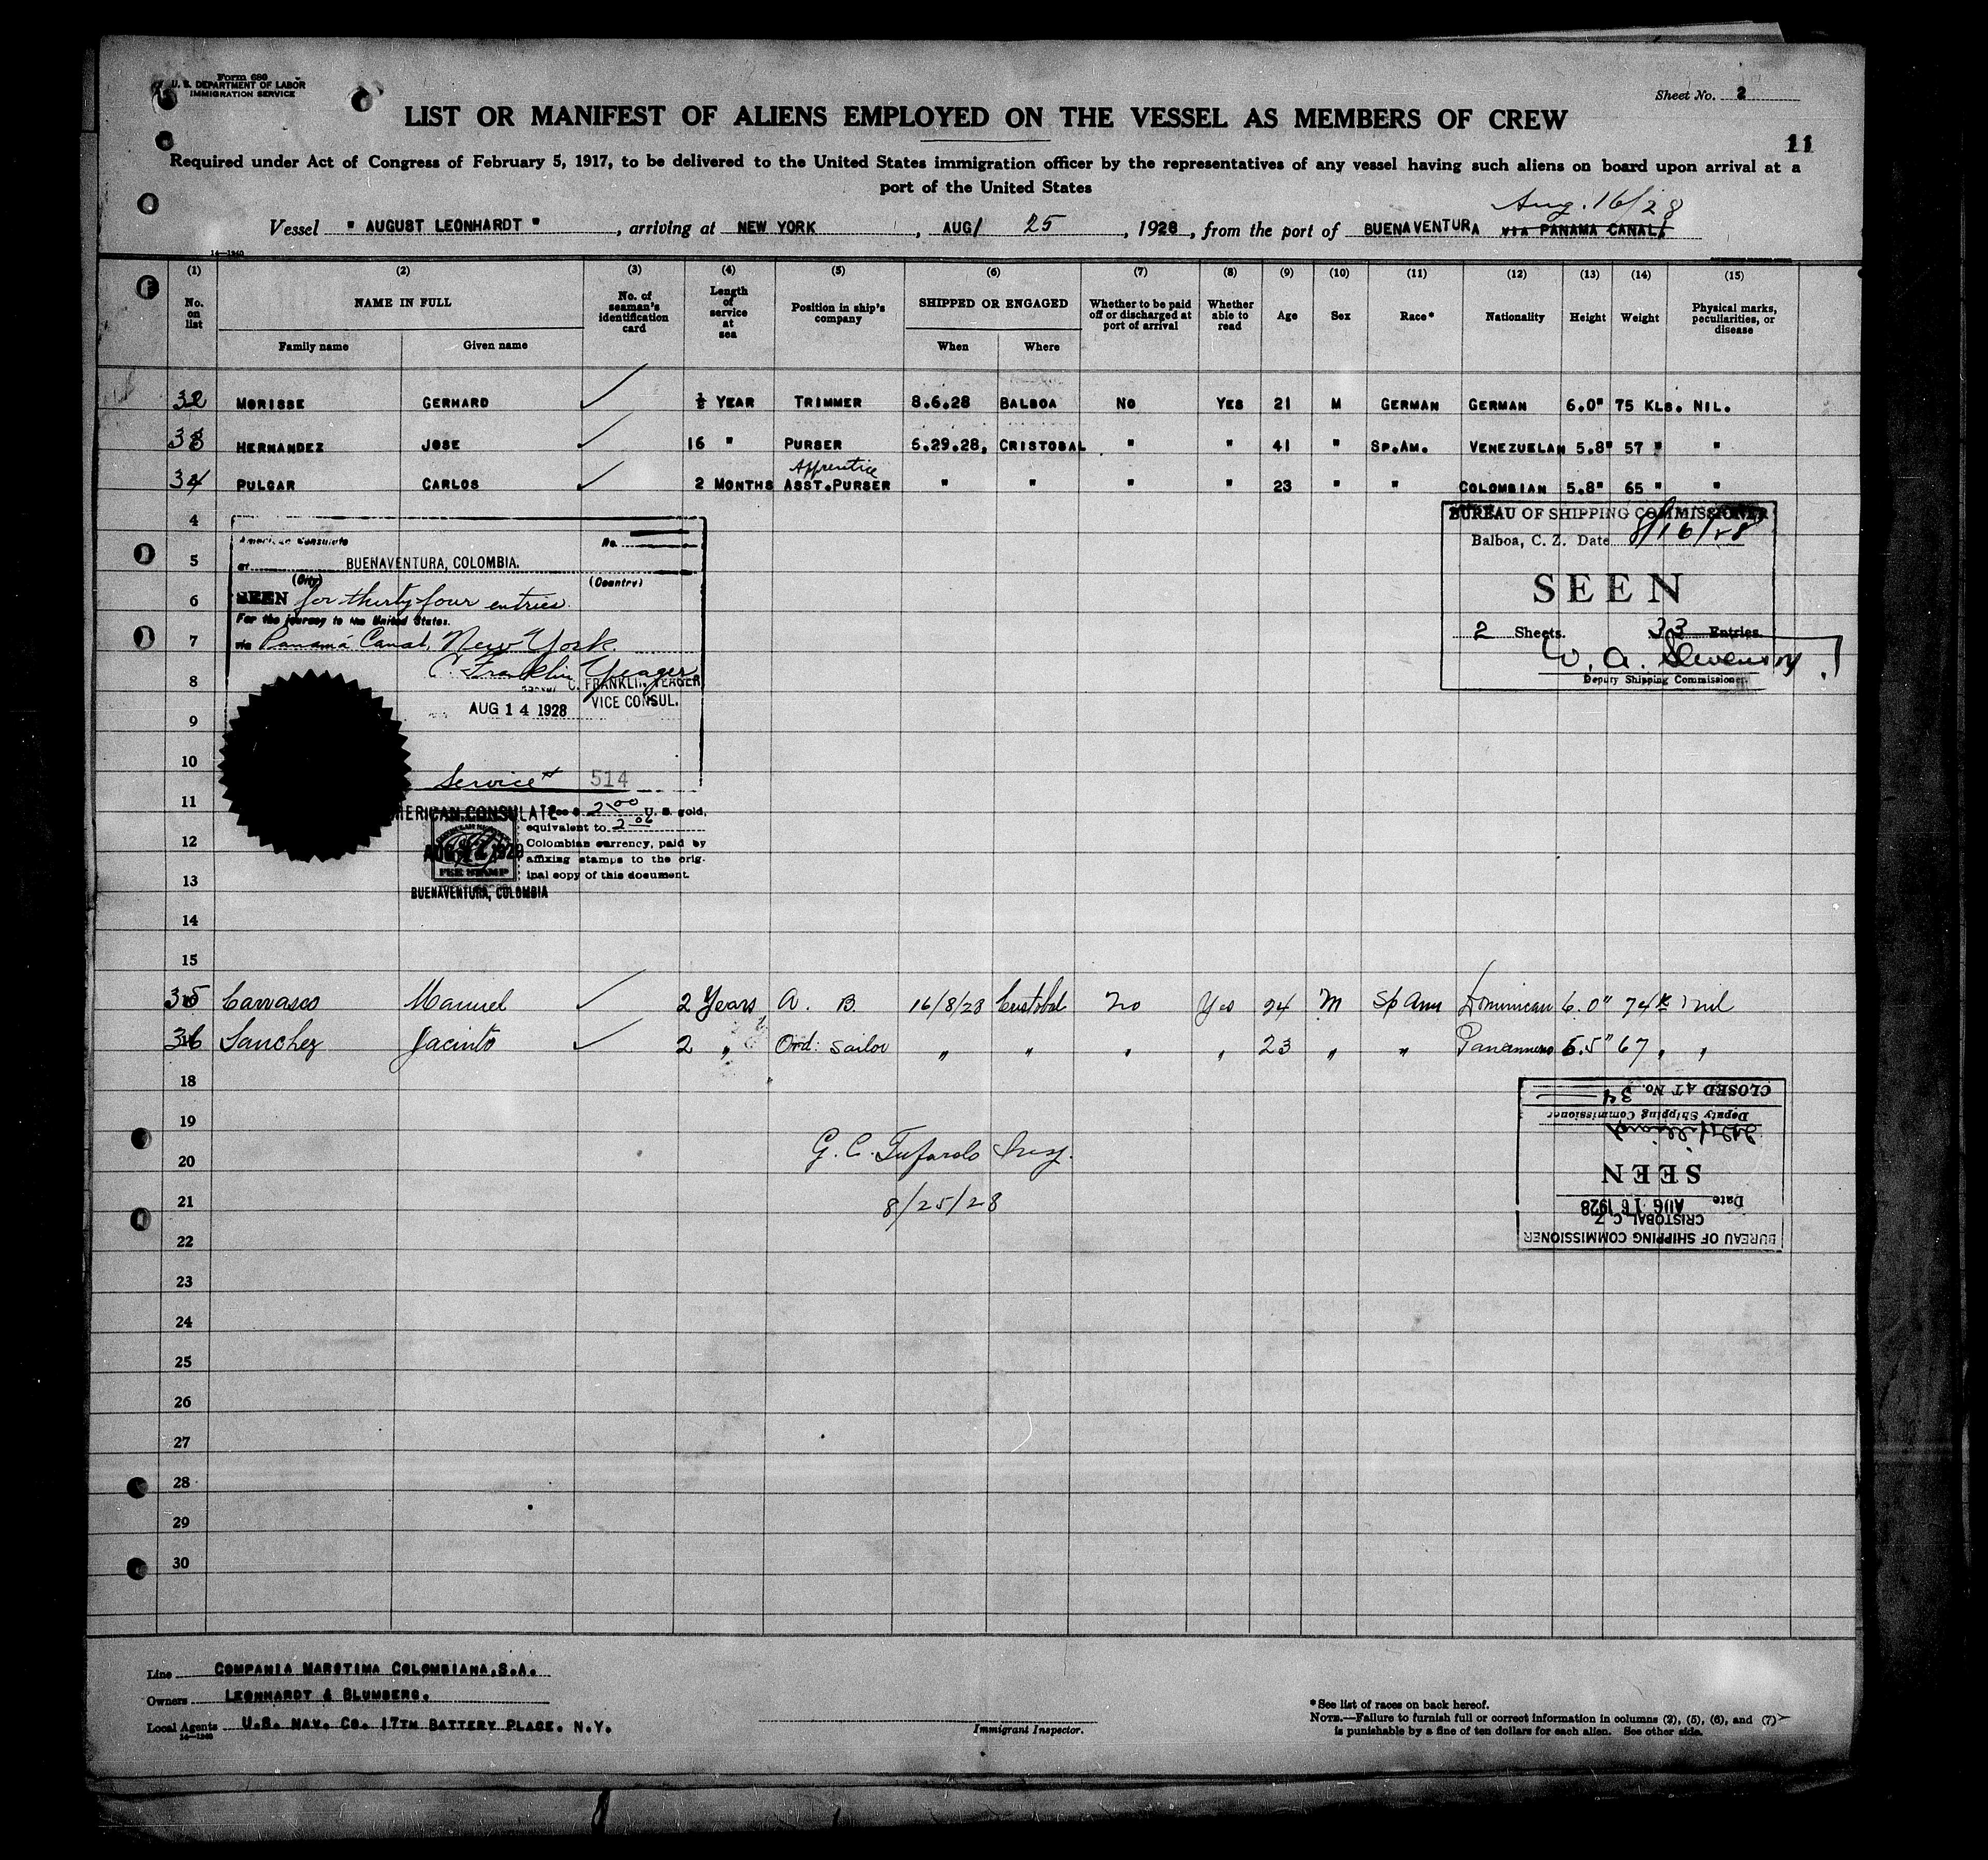 Form 680
U. S. DEPARTMENT OF LABOR
IMMIGRATION SERVICE
Sheet No. 2
LIST OR MANIFEST OF ALIENS EMPLOYED ON THE VESSEL AS MEMBERS OF CREW
11
Required under Act of Congress of February 5, 1917, to be delivered to the United States immigration officer by the representatives of any vessel having such aliens on board upon arrival at a
port of the United States
Aug. 16/28
Vessel " AUGUST LEONHARDT ", arriving at NEW YORK, AUG/ 25, 1928, from the port of BUENAVENTURA VIA PANAMA CANAL
14—1240
(1) (2) (3) (4) (5) (6) (7) (8) (9) (10) (11) (12) (13) (14) (15)
No. on list NAME IN FULL No. of seaman's identification card Length of service at sea Position in ship's company SHIPPED OR ENGAGED Whether to be paid off or discharged at port of arrival Whether able to read Age Sex Race* Nationality Height Weight Physical marks, peculiarities, or disease
Family name Given name When Where
32 MORISSE GERHARD ½ YEAR TRIMMER 8.6.28 BALBOA NO YES 21 M GERMAN GERMAN 6.0" 75 KLS. NIL.
33 HERNANDEZ JOSE 16 " PURSER 6.29.28, CRISTOBAL " " 41 " SP.AM. VENEZUELAN 5.8" 57 " "
Apprentice
34 PULGAR CARLOS 2 MONTHS ASST.PURSER " " " " 23 " " COLOMBIAN 5.8" 65 " "
4
5
6
7
8
9
10
11
12
13
14
15
American Consulate No.
at BUENAVENTURA, COLOMBIA.
(City) (Country)
SEEN for thirty four entries.
For the journey to the United States.
via Panamá Canal, New York.
C. Franklin Yeager
C. FRANKLIN YEAGER
VICE CONSUL.
AUG 14 1928
Service # 514
AMERICAN CONSULATE
Fee $ 2.00 U. S. gold,
equivalent to 2.06
Colombian currency, paid by
affixing stamps to the orig-
inal copy of this document.
FEE STAMP
BUENAVENTURA, COLOMBIA
BUREAU OF SHIPPING COMMISSIONER
Balboa, C. Z. Date 8/16/28
SEEN
2 Sheets. 33 Entries.
W. A. Stevenson
Deputy Shipping Commissioner.
35 Carrasco Manuel 2 Years A. B. 16/8/28 Cristobal No Yes 24 M Sp Am Dominican 6.0" 74 K nil
36 Sanchez Jacinto 2 " Ord: Sailor " " " " 23 " " Panameno 5.5" 67 " "
18
19
20
21
22
23
24
25
26
27
28
29
30
G. C. Tufarolo Insp.
8/25/28
BUREAU OF SHIPPING COMMISSIONER
CRISTOBAL C. Z.
Date AUG 16 1928
SEEN
Deputy Shipping Commissioner
CLOSED AT No. 34
Line COMPANIA MAROTIMA COLOMBIANA,S.A.
Owners LEONHARDT & BLUMBERG.
Local Agents U.S. NAV. CO. 17TH BATTERY PLACE. N.Y.
14—1240
Immigrant Inspector.
*See list of races on back hereof.
NOTE.—Failure to furnish full or correct information in columns (2), (5), (6), and (7)
is punishable by a fine of ten dollars for each alien. See other side.